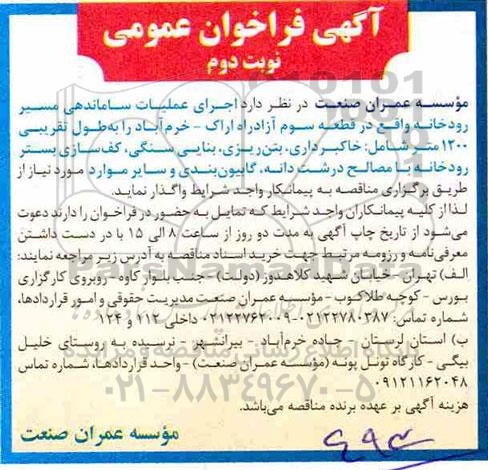 آگهی فراخوان عمومی
نوبت دوم
مؤسسه عمران صنعت در نظر دارد اجرای عملیات ساماندهی مسیر
رودخانه واقع در قطعه سوم آزادراه اراک - خرم‌آباد را به‌طول تقریبی
۱۲۰۰ متر شامل: خاکبرداری، بتن‌ریزی، بنایی سنگی، کف‌سازی بستر
رودخانه با مصالح درشت دانه، گابیون‌بندی و سایر موارد مورد نیاز از
طریق برگزاری مناقصه به پیمانکار واجد شرایط واگذار نماید.
لذا از کلیه پیمانکاران واجد شرایط که تمایل به حضور در فراخوان را دارند دعوت
می‌شود از تاریخ چاپ آگهی به مدت دو روز از ساعت ۸ الی ۱۵ با در دست داشتن
معرفی‌نامه و رزومه مرتبط جهت خرید اسناد مناقصه به آدرس زیر مراجعه نمایند:
الف) تهران - خیابان شهید کلاهدوز (دولت) - جنب بلوار کاوه - روبروی کارگزاری
بورس - کوچه طلاکوب - مؤسسه عمران صنعت مدیریت حقوقی و امور قراردادها،
شماره تماس: ۰۲۱۲۲۷۸۰۳۸۷-۰۲۱۲۲۷۶۲۰۰۹ داخلی ۱۱۲ و ۱۲۴
ب) استان لرستان - جاده خرم‌آباد - بیرانشهر - نرسیده به روستای خلیل
بیگی - کارگاه تونل پونه (مؤسسه عمران صنعت) - واحد قراردادها، شماره تماس
۰۹۱۲۱۱۶۲۰۴۸
هزینه آگهی بر عهده برنده مناقصه می‌باشد.
مؤسسه عمران صنعت
۰۲۱-۸۸۳۴۹۶۷۰-۵